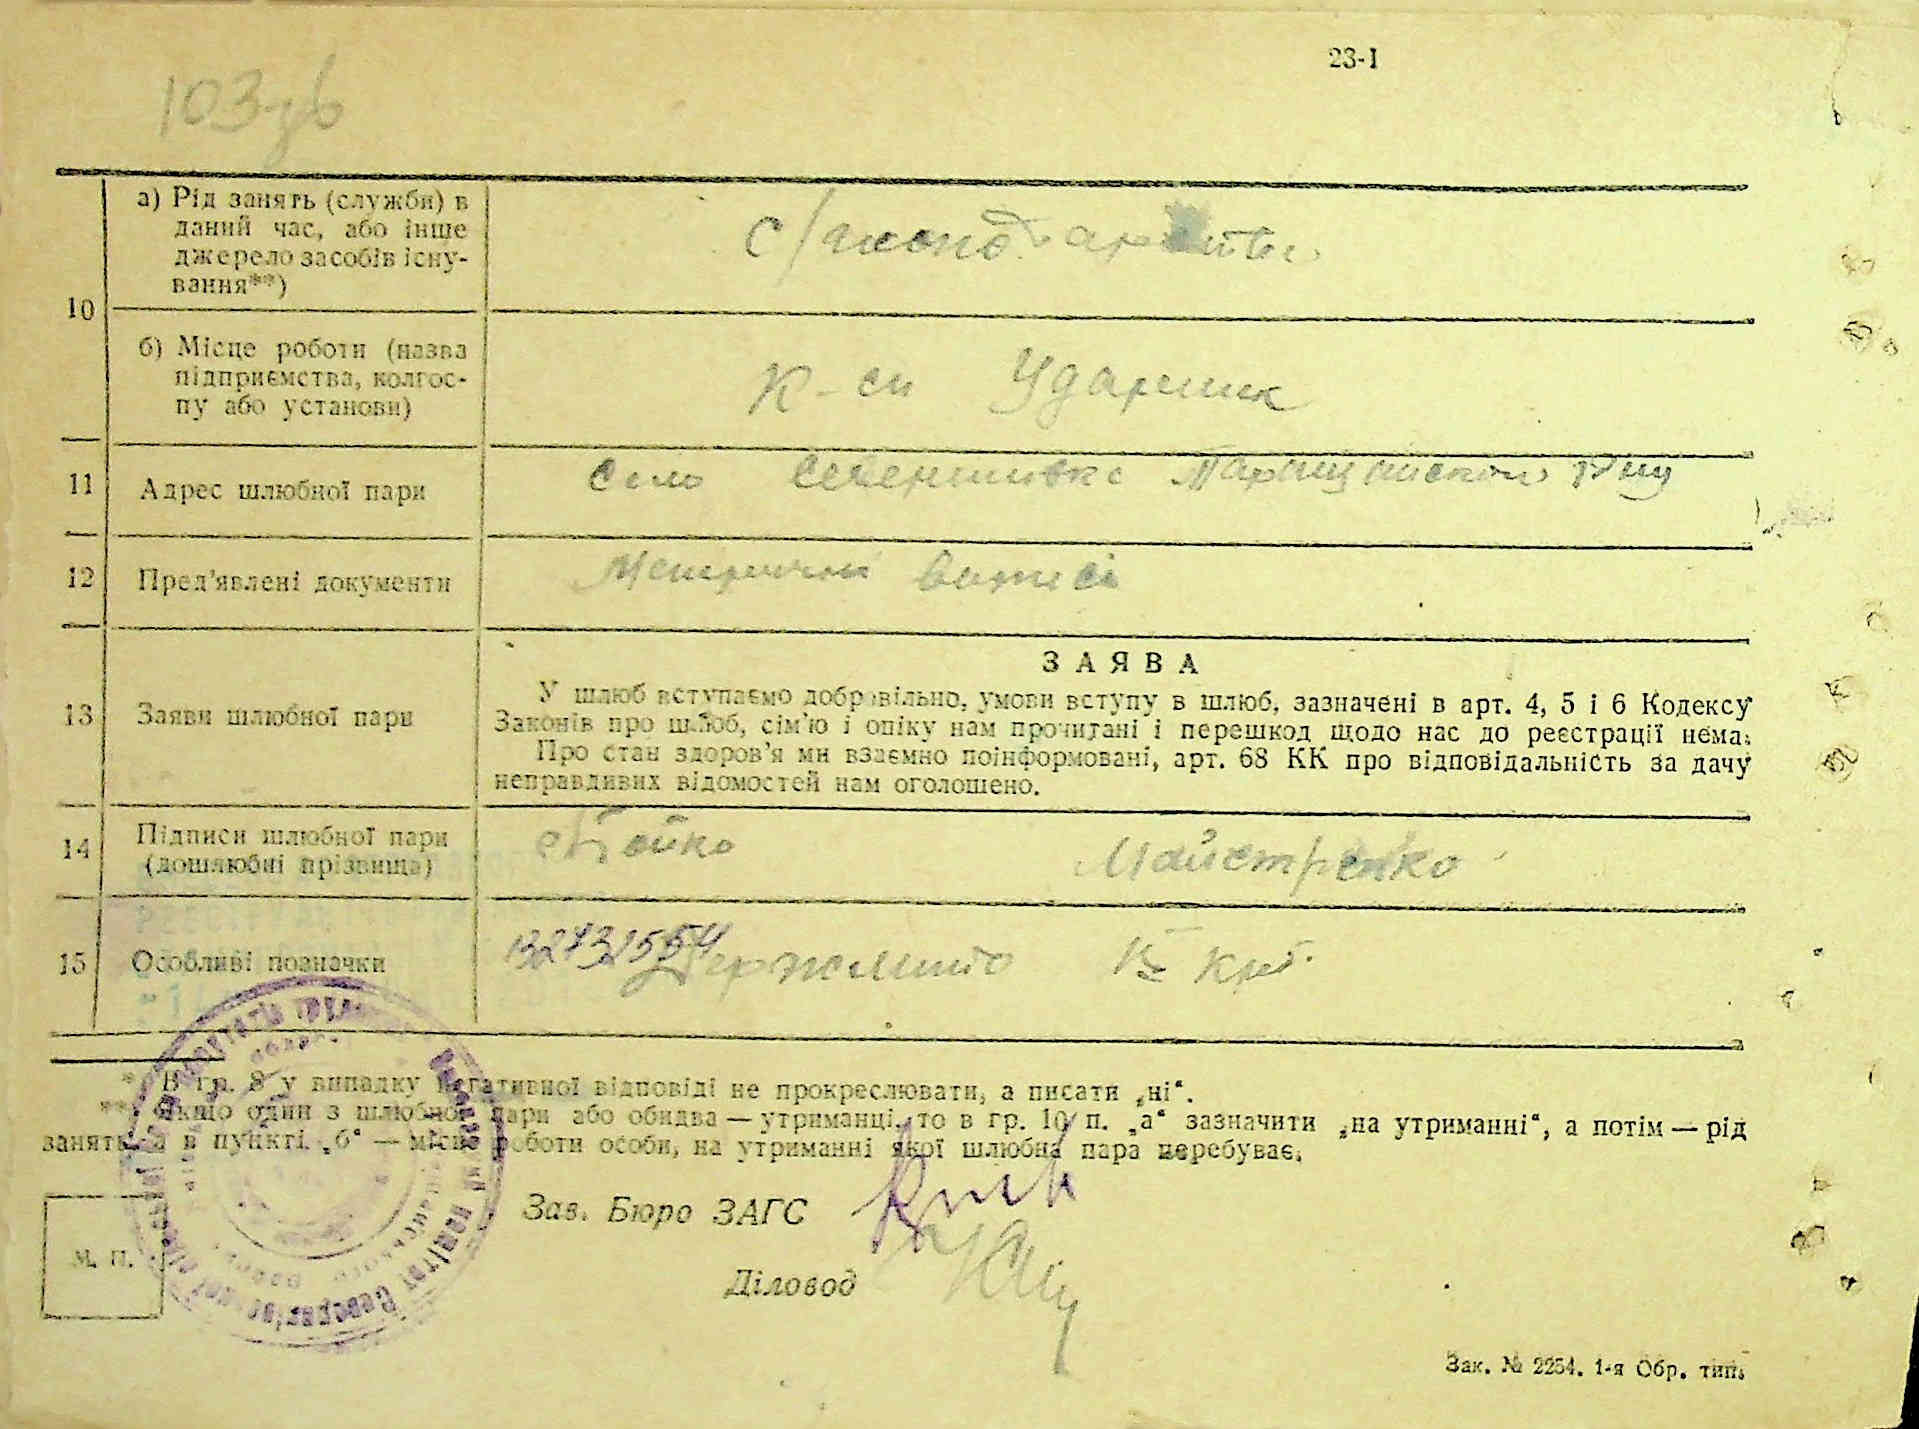 23-1
103-зв
10
а) Рід занять (служби) в
даний час, або інше
джерело засобів існу-
вання**)
б) Місце роботи (назва
підприємства, колгос-
пу або установи)
Ударник
11 Адрес шлюбної пари
село
12 Пред'явлені документи
Метричні
13 Заяви шлюбної пари
ЗАЯВА
У шлюб вступаємо добровільно, умови вступу в шлюб, зазначені в арт. 4, 5 і 6 Кодексу
Законів про шлюб, сім'ю і опіку нам прочитані і перешкод щодо нас до реєстрації нема.
Про стан здоров'я ми взаємно поінформовані, арт. 68 КК про відповідальність за дачу
неправдивих відомостей нам оголошено.
14 Підписи шлюбної пари
(дошлюбні прізвища)
Бойко Майстренко
15 Особливі позначки
Держмито
* В гр. 8 у випадку негативної відповіді не прокреслювати, а писати „ні“.
** Якщо один з шлюбної пари або обидва — утриманці, то в гр. 10 п. „а“ зазначити „на утриманні“, а потім — рід
занять, а в пункті „б“ — місце роботи особи, на утриманні якої шлюбна пара перебуває.
Зав. Бюро ЗАГС
М. П.
Діловод
Зак. № 2254. 1-я Обр. тип.